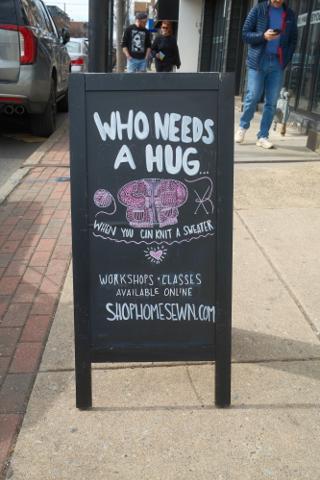 WHO NEEDS
A HUG...
WHEN YOU CAN KNIT A SWEATER
WORKSHOPS • CLASSES
AVAILABLE ONLINE
SHOPHOMESEWN.COM